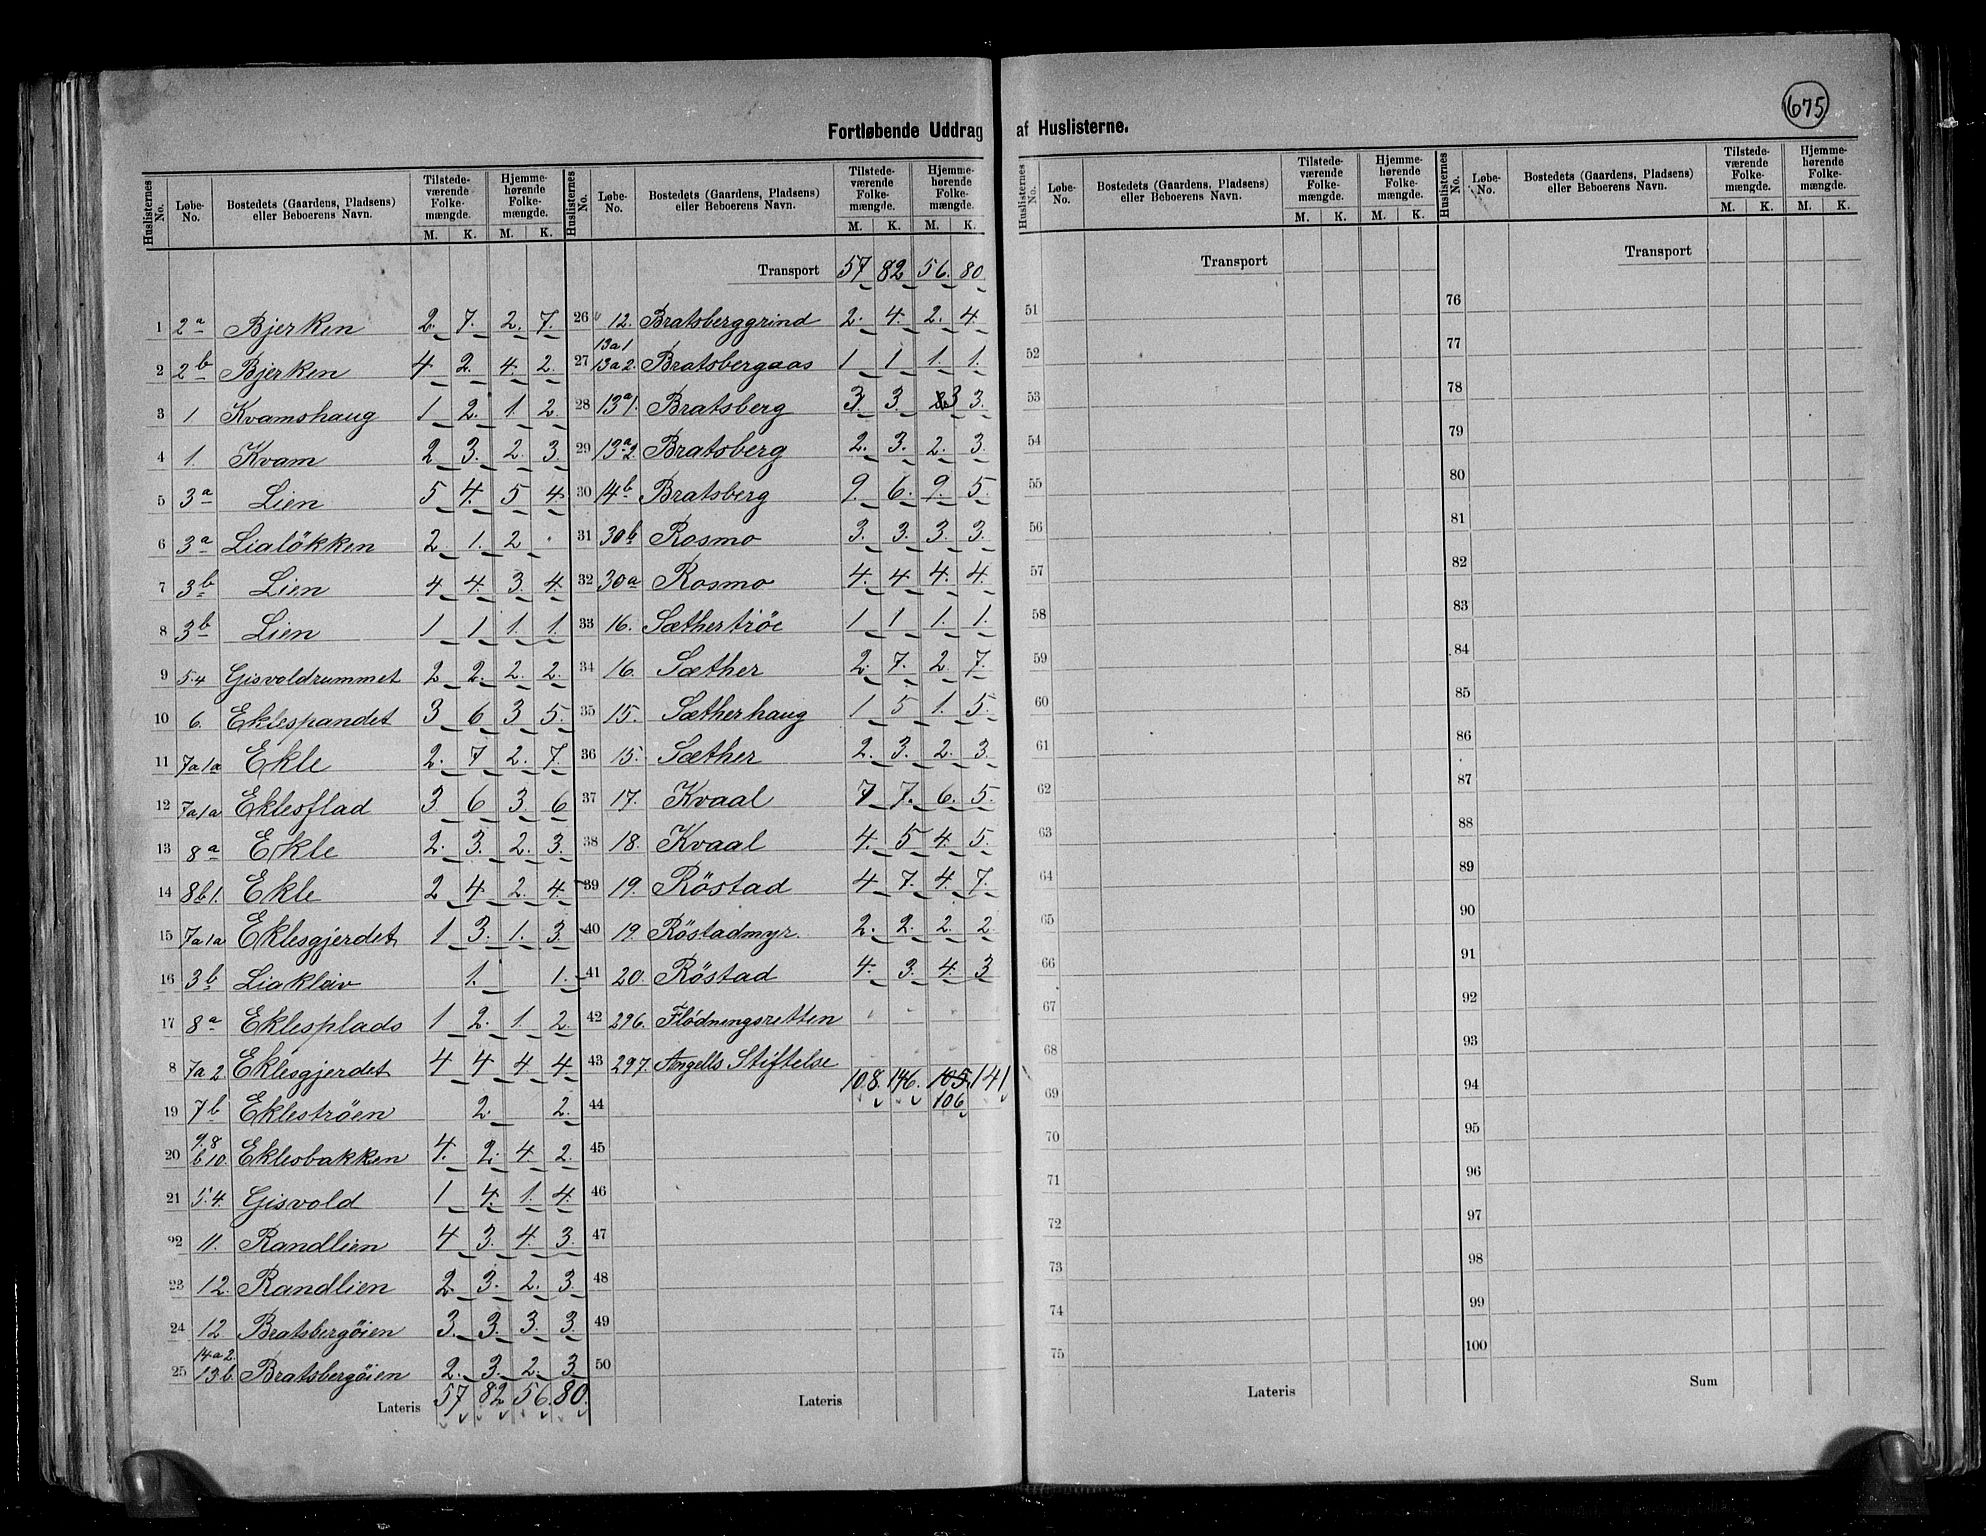 675
Fortløbende Uddrag af Huslisterne.
Huslisternes No. | Løbe-No. | Bostedets (Gaardens, Pladsens) eller Beboerens Navn. | Tilstedeværende Folkemængde. M. K. | Hjemmehørende Folkemængde. M. K.
1 2a Bjerken 2. 7. 2. 7.
2 2b Bjerken 4 2. 4. 2.
3 1 Kvamshaug 1 2. 1. 2.
4 1. Kvam 2 3. 2. 3.
5 3a Lien 5 4. 5 4.
6 3a Lialökken 2. 1. 2 -
7 3b Lien 4 4. 3. 4.
8 3b Lien 1 1 1. 1.
9 5.4 Gisvoldrummet 2 2. 2. 2.
10 6. Eklespandet 3 6 3 5.
11 7a1a Ekle 2. 7 2. 7.
12 7a1a Eklesflad 3 6 3. 6
13 8a Ekle 2. 3. 2. 3.
14 8b1. Ekle 2 4. 2. 4.
15 7a1a Eklesgjerdet 1 3. 1. 3.
16 3b Liakleiv 1. 1.
17 8a Eklesplads 1 2. 1. 2.
8 7a2 Eklesgjerdet 4 4 4 4
19 7b Ekleströen 2. 2.
20 9.8 b10. Eklesbakken 4. 2. 4 2.
21 5.4. Gisvold 1 4. 1. 4.
22 11. Randlien 4 3. 4. 3.
23 12. Randlien 2. 3. 2. 3.
24 12 Bratsbergöien 3. 3. 3. 3.
25 14a2. 13b. Bratsbergöien 2. 3. 2. 3
Lateris 57 82 56. 80.
Huslisternes No. | Løbe-No. | Bostedets (Gaardens, Pladsens) eller Beboerens Navn. | Tilstedeværende Folkemængde. M. K. | Hjemmehørende Folkemængde. M. K.
Transport 57 82 56. 80.
26 12. Bratsberggrind 2. 4. 2. 4.
27 13a1 13a2. Bratsbergaas 1 1 1. 1.
28 13a1. Bratsberg 3. 3. 3 3.
29 13a2. Bratsberg 2. 3. 2. 3.
30 14b Bratsberg 9. 6. 9. 5.
31 30b Rosmo 3. 3. 3. 3.
32 30a Rosmo 4. 4 4. 4.
33 16. Sæthertröe 1 1 1. 1.
34 16. Sæther 2. 7. 2. 7.
35 15. Sætherhaug 1 5 1. 5.
36 15. Sæther 2. 3. 2. 3.
37 17. Kvaal 7 7. 6. 5.
38 18. Kvaal 4. 5 4. 5.
39 19. Röstad 4 7. 4. 7.
40 19. Röstadmyr. 2. 2. 2. 2
41 20. Röstad 4. 3. 4. 3
42 296. Flödningsretten - - - -
43 297. Angells Stiftelse
108. 146. 105. 141
106
44
45
46
47
48
49
50
Lateris
Huslisternes No. | Løbe-No. | Bostedets (Gaardens, Pladsens) eller Beboerens Navn. | Tilstedeværende Folkemængde. M. K. | Hjemmehørende Folkemængde. M. K.
Transport
51
52
53
54
55
56
57
58
59
60
61
62
63
64
65
66
67
68
69
70
71
72
73
74
75
Lateris
Huslisternes No. | Løbe-No. | Bostedets (Gaardens, Pladsens) eller Beboerens Navn. | Tilstedeværende Folkemængde. M. K. | Hjemmehørende Folkemængde. M. K.
Transport
76
77
78
79
80
81
82
83
84
85
86
87
88
89
90
91
92
93
94
95
96
97
98
99
100
Sum